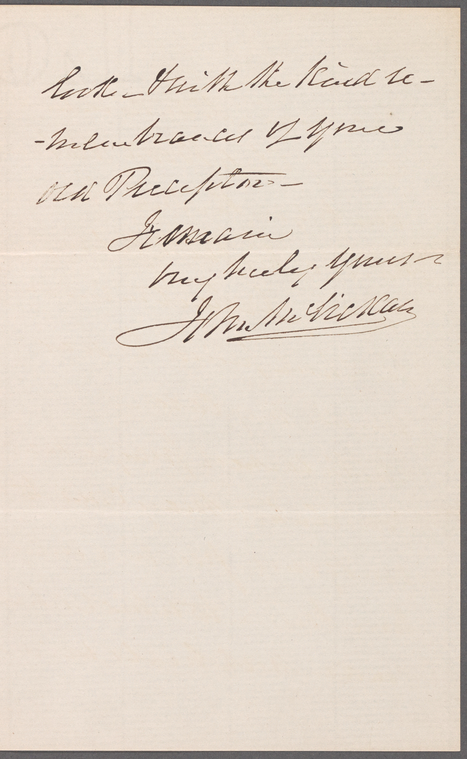 look - & with the kind re-
-membrances of your
old Preceptor -
I remain
very truly yours -
John McVickar